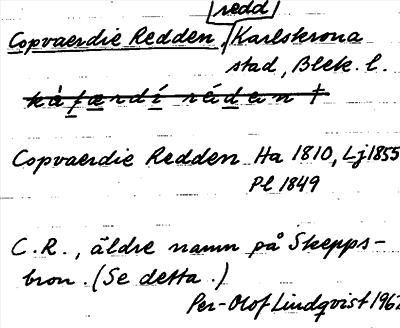 redd
Copvaerdie Redden, Karlskrona
stad, Blek. l.
kåfærdí rédən †
Copvaerdie Redden Ha 1810, Lj 1855
Pl 1849
C.R., äldre namn på Skepps-
bron. (Se detta.)
Per-Olof Lindqvist 1962